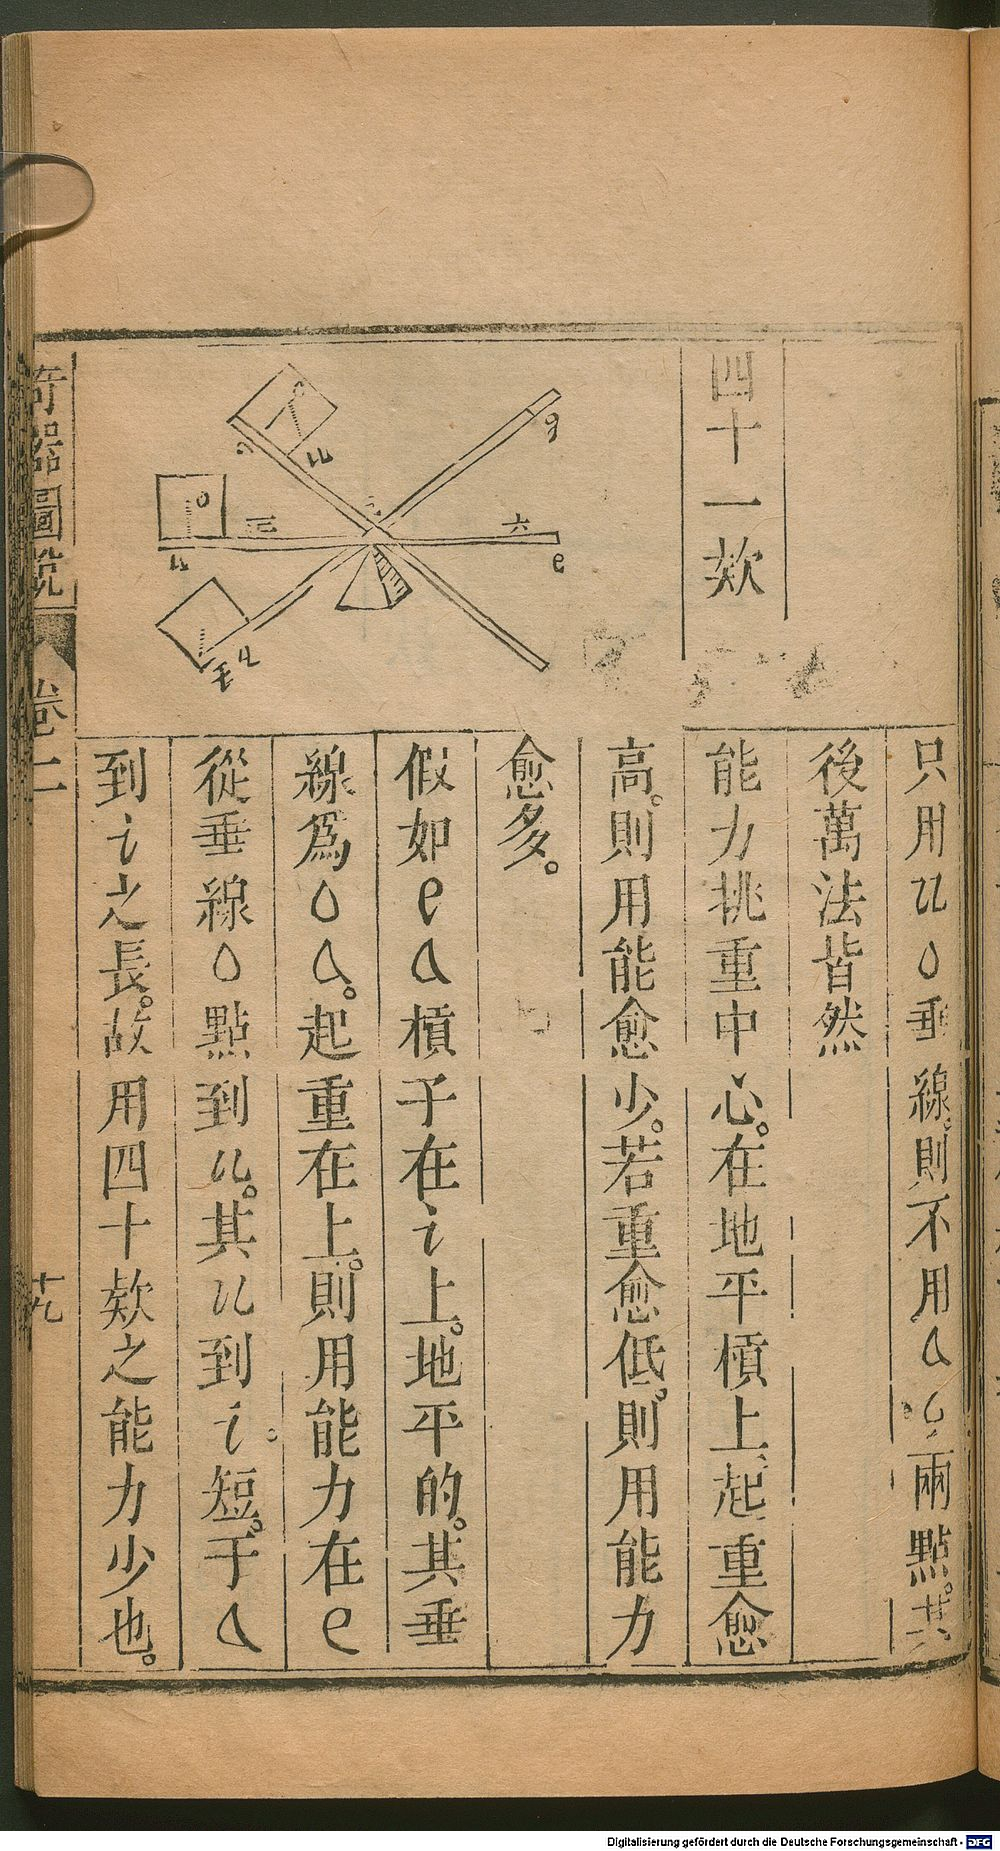 只用u o垂線則不用a i兩點。其
後萬法皆然
四十一欵
能力挑重中心。在地平槓上起重愈
高。則用能愈少。若重愈低。則用能力
愈多。
假如e a槓于在i上。地平的。其垂
線為o a。起重在上。則用能力在e
從垂線o點到u。其u到i。短。于a
到i之長。故用四十欵之能力少也。
g
六
e
三
o
奇器圖說
卷二
十九
Digitalisierung gefördert durch die Deutsche Forschungsgemeinschaft - DFG